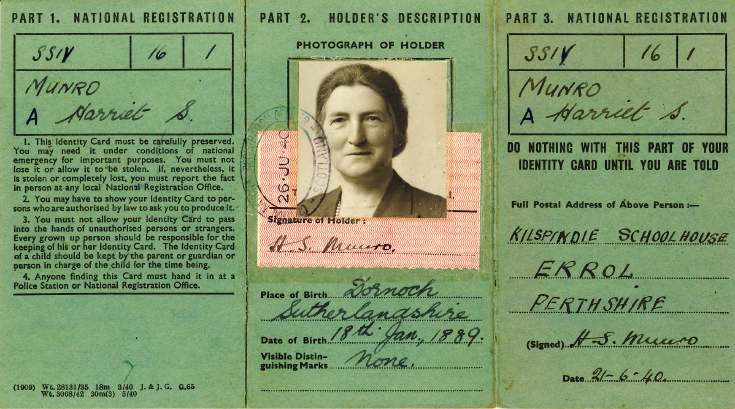 PART 1. NATIONAL REGISTRATION
SS1V 16 1
MUNRO
A Harriet S.
1. This Identity Card must be carefully preserved.
You may need it under conditions of national
emergency for important purposes. You must not
lose it or allow it to be stolen. If, nevertheless, it
is stolen or completely lost, you must report the fact
in person at any local National Registration Office.
2. You may have to show your Identity Card to per-
sons who are authorised by law to ask you to produce it.
3. You must not allow your Identity Card to pass
into the hands of unauthorised persons or strangers.
Every grown up person should be responsible for the
keeping of his or her Identity Card. The Identity Card
of a child should be kept by the parent or guardian or
person in charge of the child for the time being.
4. Anyone finding this Card must hand it in at a
Police Station or National Registration Office.
(1909) Wt. 28131/35 18m 3/40 J. & J. G. G.65
Wt. 3068/42 30m(3) 5/40
PART 2. HOLDER'S DESCRIPTION
PHOTOGRAPH OF HOLDER
26 JU 40
Signature of Holder :
H. S. Munro.
Place of Birth Dornoch
Sutherlandshire
Date of Birth 18th Jan, 1889.
Visible Distin-
guishing Marks None.
PART 3. NATIONAL REGISTRATION
SS1V 16 1
MUNRO
A Harriet S.
DO NOTHING WITH THIS PART OF YOUR
IDENTITY CARD UNTIL YOU ARE TOLD
Full Postal Address of Above Person :—
KILSPINDIE SCHOOLHOUSE
ERROL
PERTHSHIRE
(Signed) H. S. Munro
Date 21-6-40.